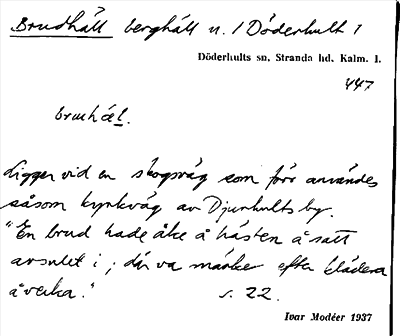 Brudhäll berghäll n. / Döderhult 1
Döderhults sn, Stranda hd, Kalm. l.
447
bruuhæl.
Ligger vid en skogsväg som förr användes
såsom kyrkväg av Djurhults by.
"En brud hade åke å hästen å satt
i; där va märke efter kläderna
å
s. 22.
Ivar Modéer 1937